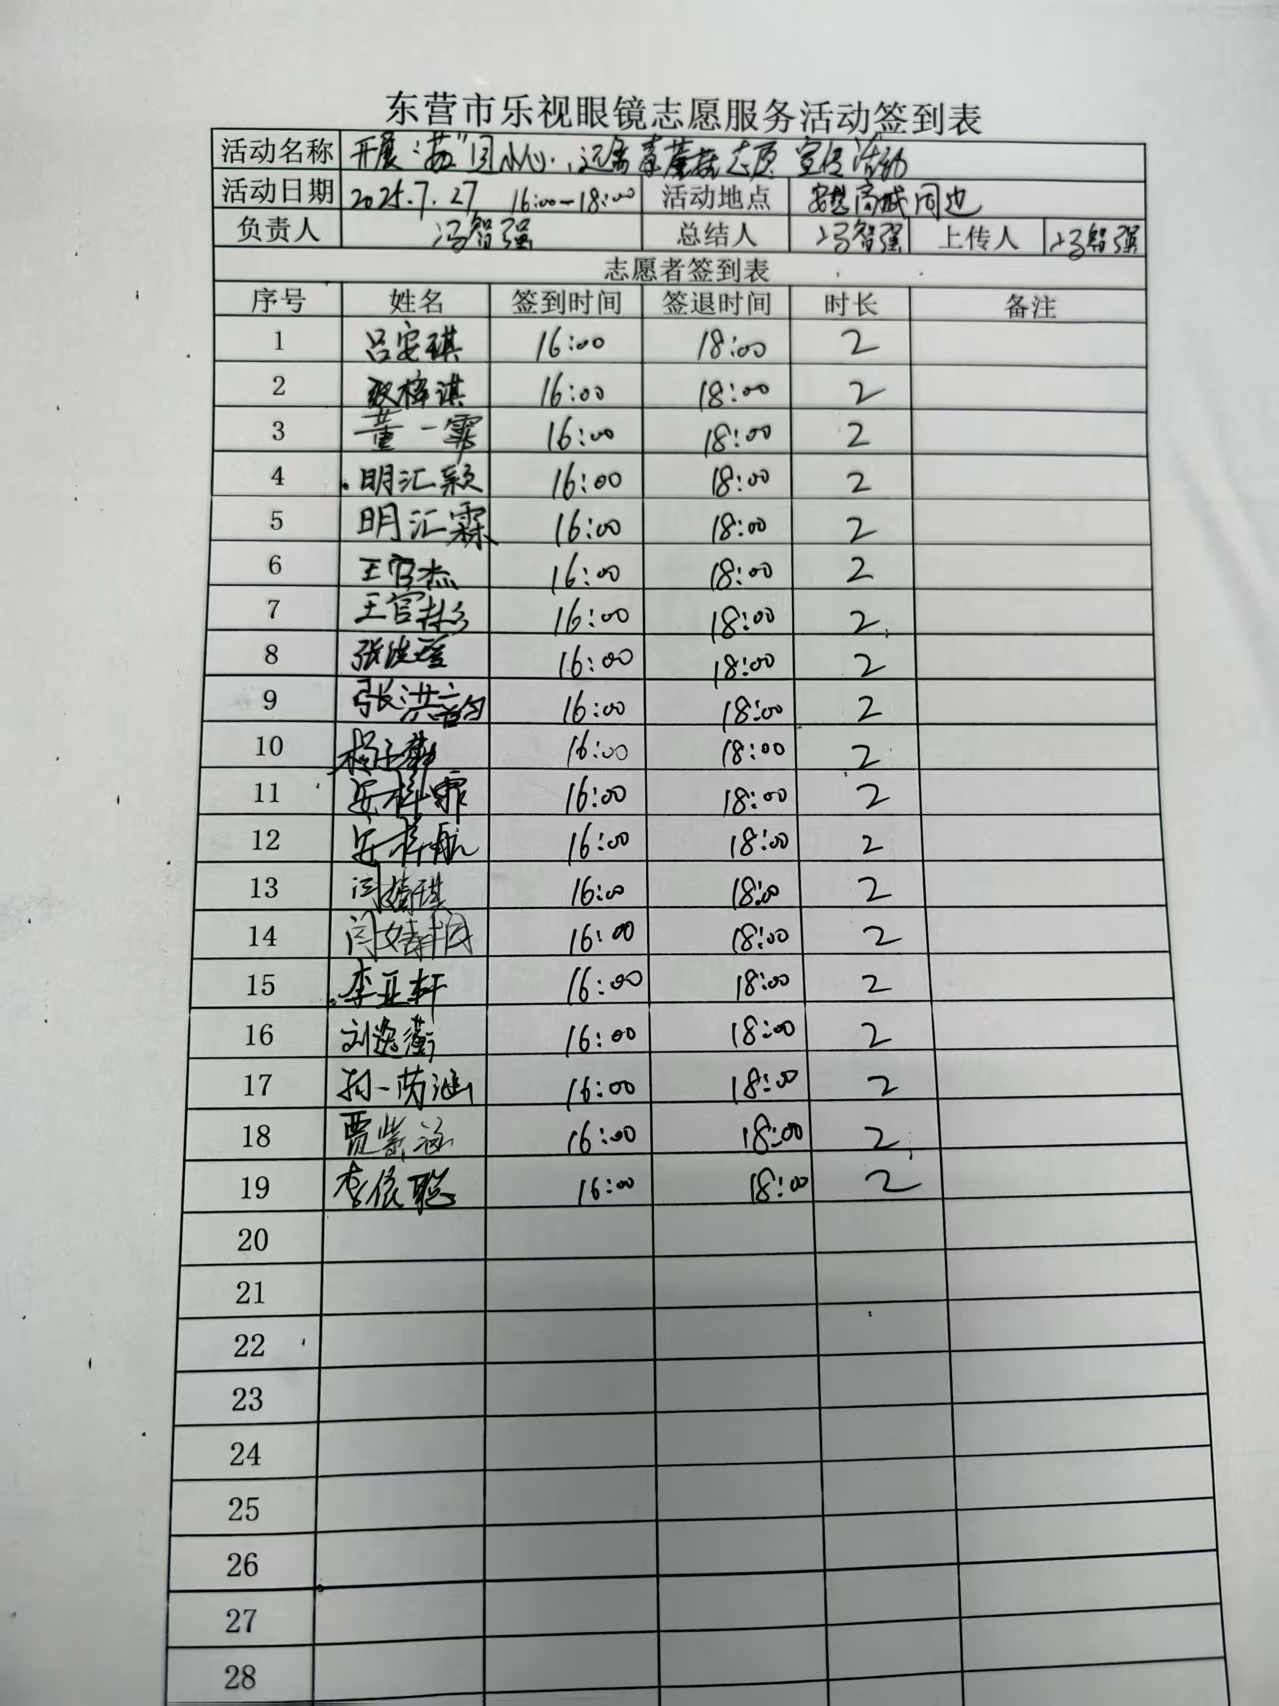 东营市乐视眼镜志愿服务活动签到表
活动名称 开展"菇"同小心,远离毒蘑菇志愿宣传活动
活动日期 2025.7.27 16:00-18:00 活动地点 安慧高城周边
负责人 冯智强 总结人 冯智强 上传人 冯智强
志愿者签到表
序号 姓名 签到时间 签退时间 时长 备注
1 吕安琪 16:00 18:00 2
2 梓淇 16:00 18:00 2
3 董一霏 16:00 18:00 2
4 明汇颖 16:00 18:00 2
5 明汇霖 16:00 18:00 2
6 王官杰 16:00 18:00 2
7 王官彬 16:00 18:00 2
8 张洪瑄 16:00 18:00 2
9 张洪韵 16:00 18:00 2
10 杨子 16:00 18:00 2
11 安梓霏 16:00 18:00 2
12 安梓航 16:00 18:00 2
13 闫婧琪 16:00 18:00 2
14 闫婧 16:00 18:00 2
15 李亚轩 16:00 18:00 2
16 刘逸衡 16:00 18:00 2
17 一芮涵 16:00 18:00 2
18 贾紫涵 16:00 18:00 2
19 李依聪 16:00 18:00 2
20
21
22
23
24
25
26
27
28